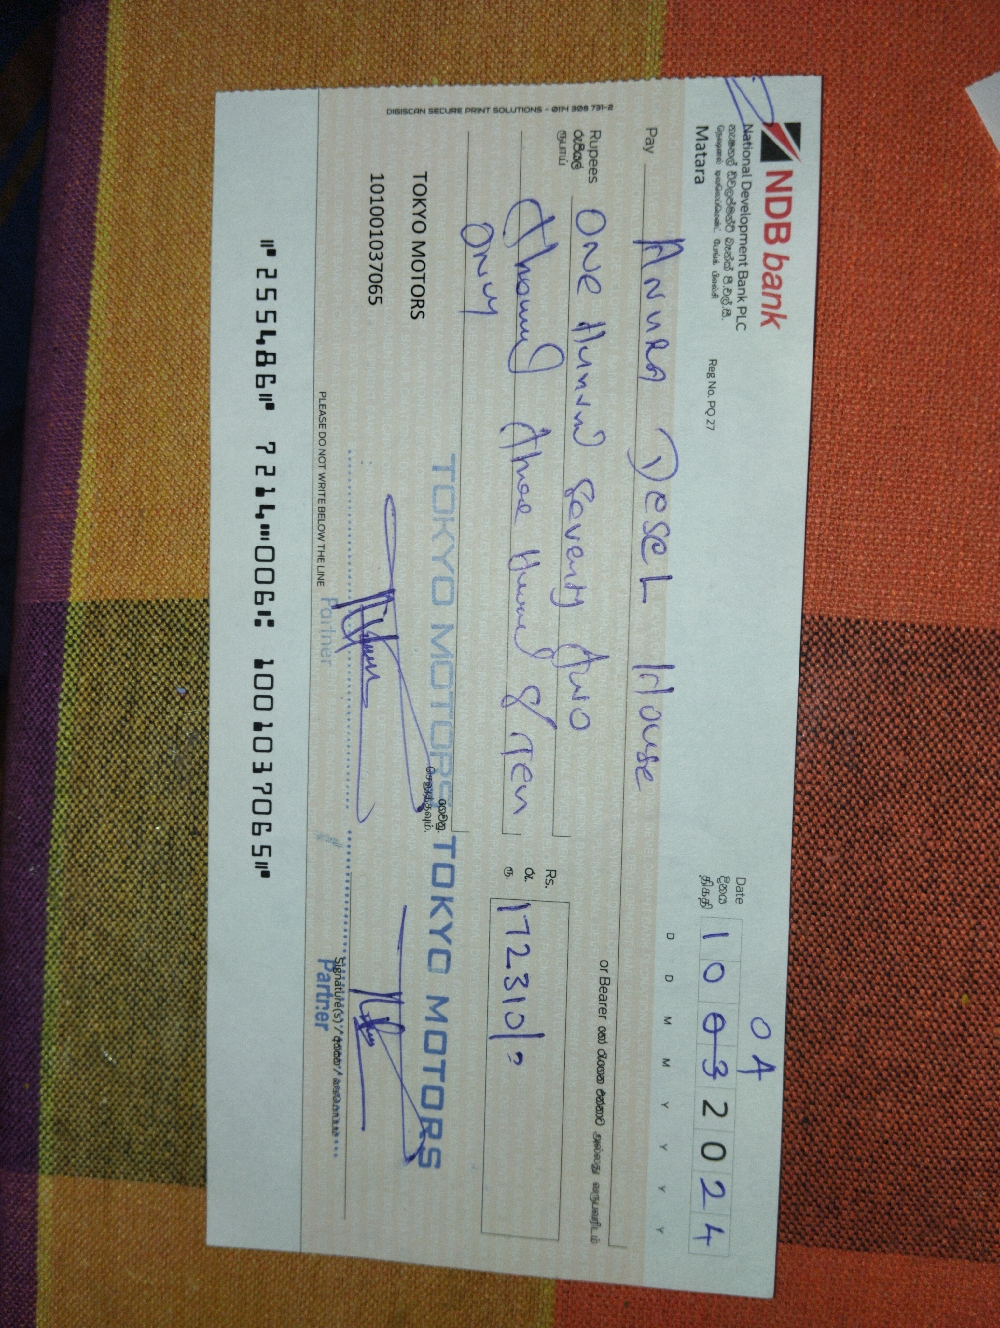 NDB bank
National Development Bank PLC
Matara
Reg No. PQ 27
04
Date
දිනය
திகதி
10 03 2024
D D M M Y Y Y Y
Pay
Anura Desel House
or Bearer
Rupees
රුපියල්
ரூபாய்
One Hundred Seventy Two
Thousand three Hundred & Ten
Only
Rs.
රු.
ரூ.
172310/=
DIGISCAN SECURE PRINT SOLUTIONS - 0114 308 731-2
TOKYO MOTORS
101001037065
TOKYO MOTORS
TOKYO MOTORS
Partner
Partner
Signature(s)
PLEASE DO NOT WRITE BELOW THE LINE
⑈255486⑈ 7214⑉006⑆ 101001037065⑈